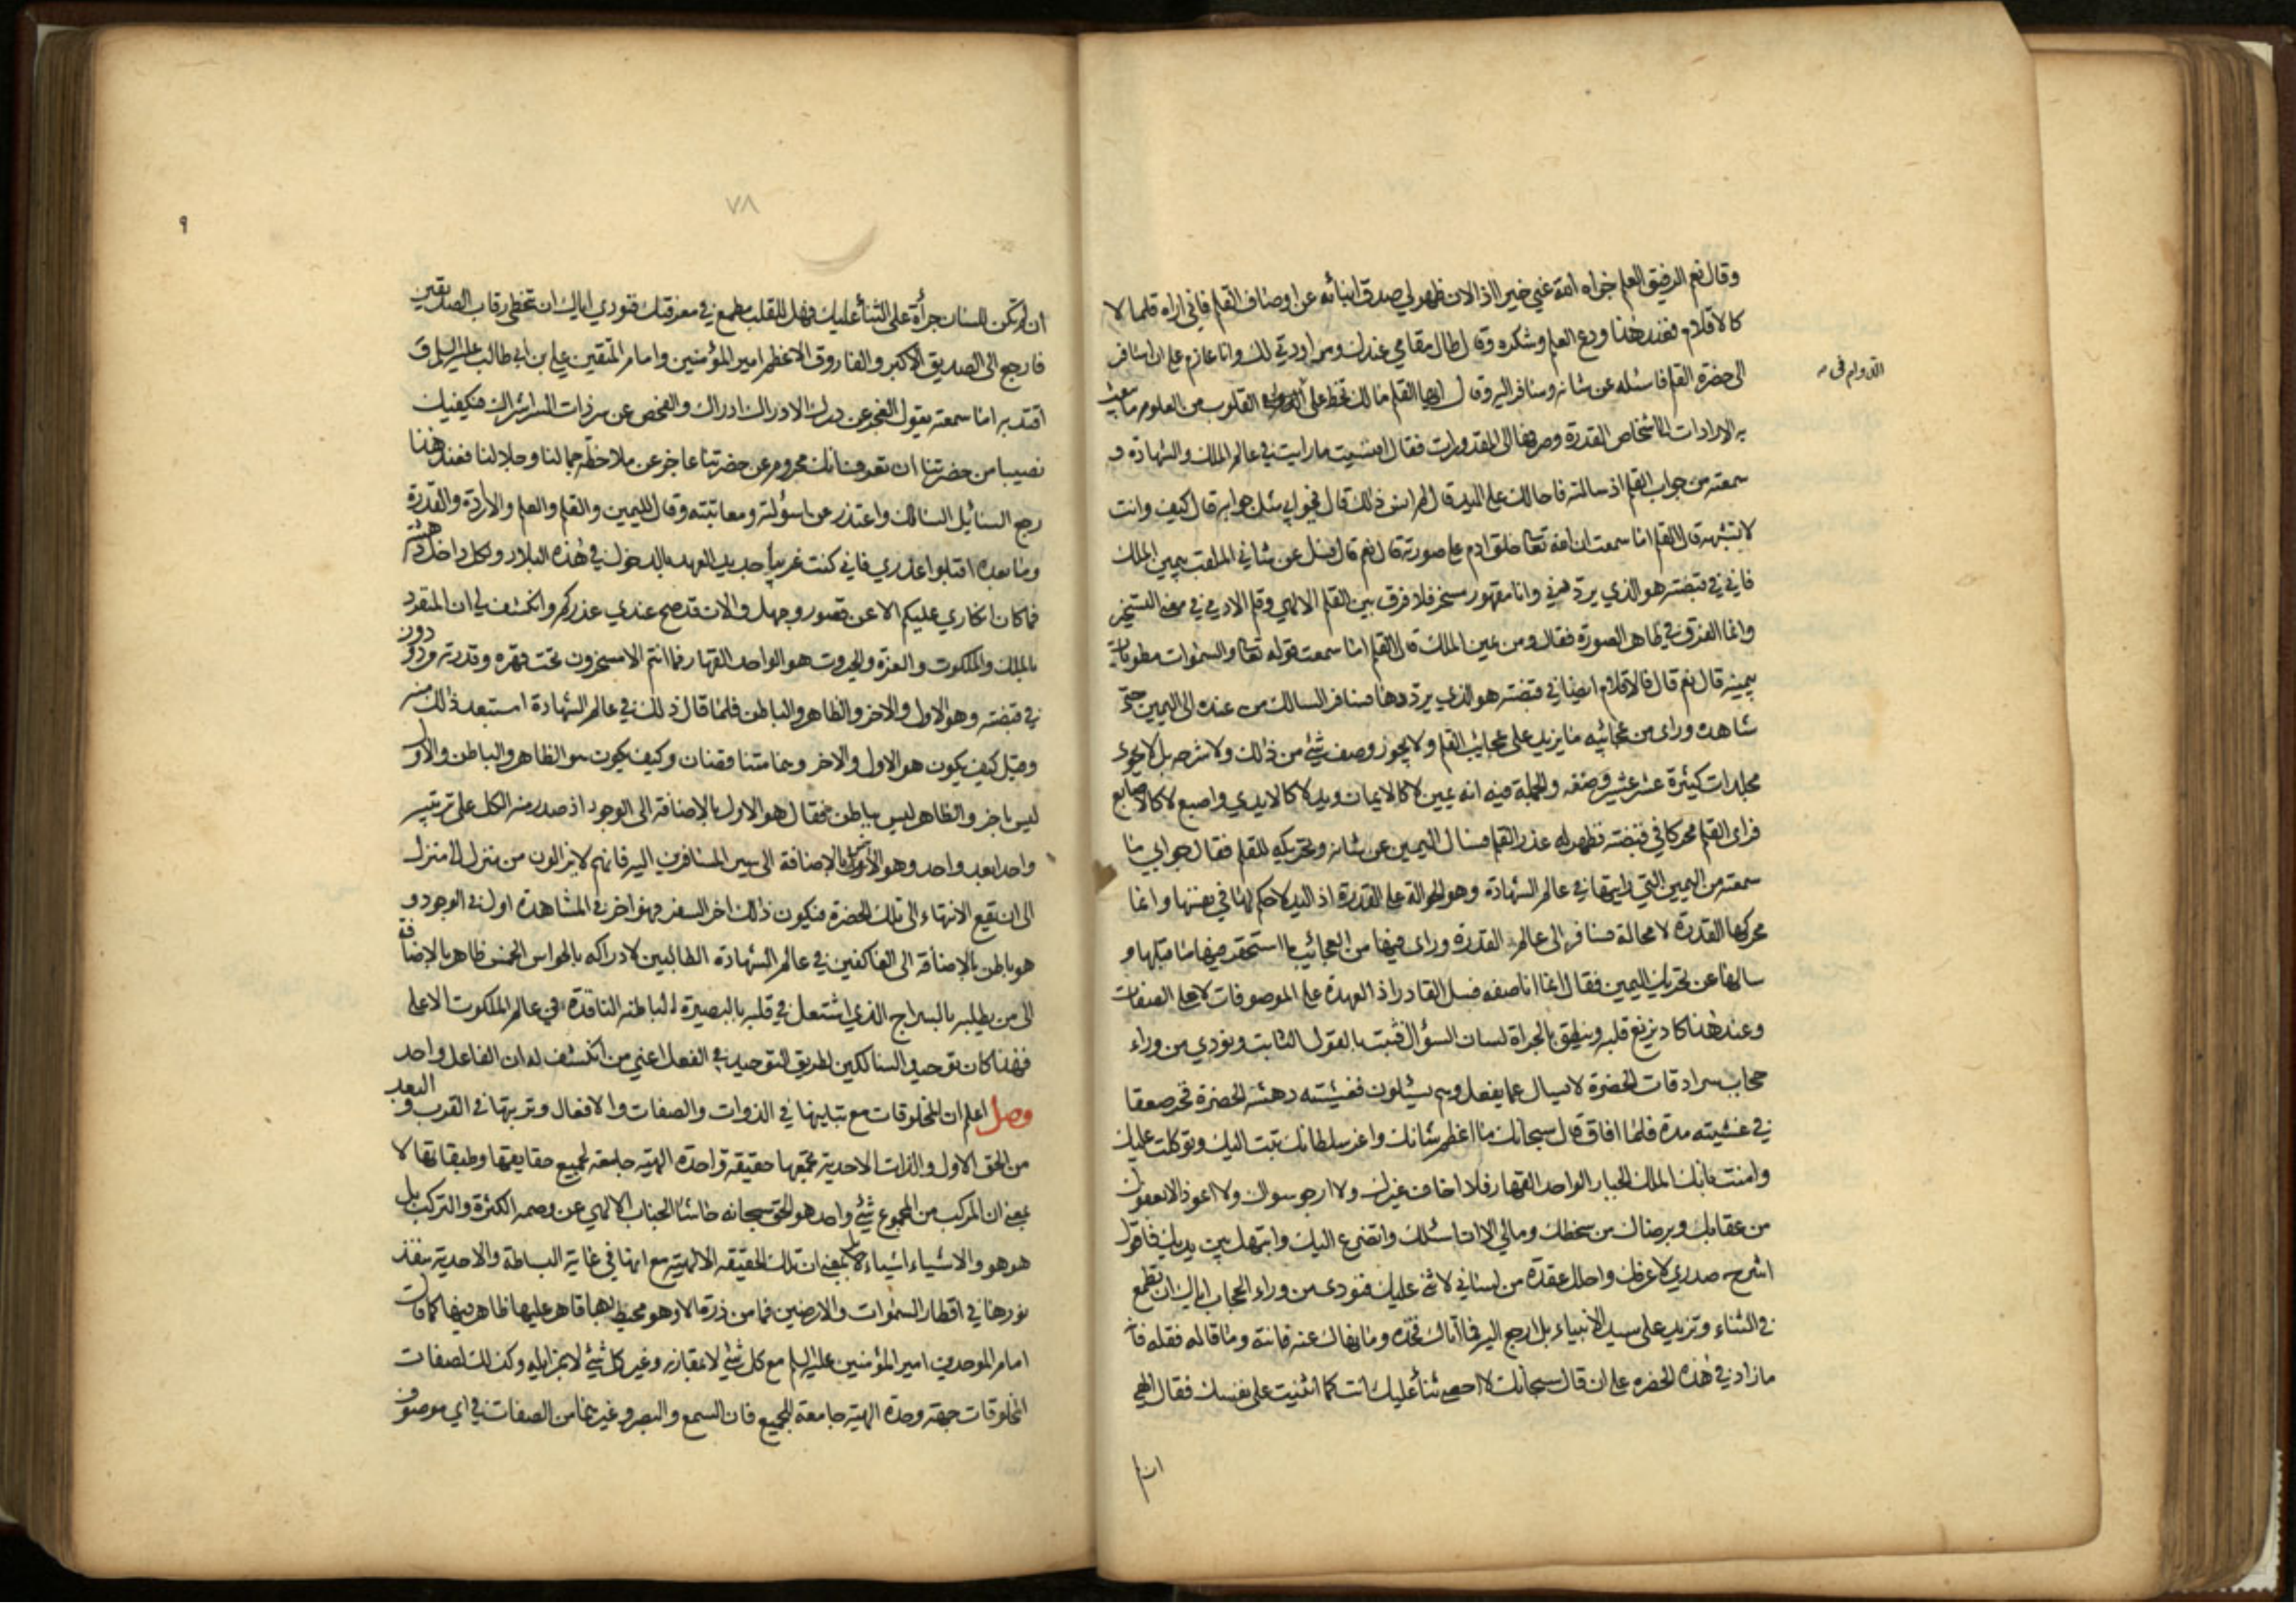 وقال نعم الرفيق العلم جزاه الله عني خيرا اذ الان ظهر لي صدق انبائه عن اوصاف القلم فاني اراه قلما لا
كالاقلام فعند هذا ودع العلم وشكره وقال طال مقامي عندك ومرادتي لك وانا عازم على ان اسافر
الى حضرة القلم فاسئله عن شانه وسافر اليه وقال ايها القلم مالك تخط على الدوام في القلوب من العلوم ما تبعث
به الارادات الى اشخاص القدرة وصرفها الى المقدورات فقال افنسيت ما رايت في عالم الملك والشهادة و
سمعته من جواب القلم اذ سالته فاحالك على اليد قال لم انس ذلك قال فجوابي مثل جوابه قال كيف وانت
لا تشبهه قال القلم اما سمعت ان الله تعالى خلق ادم على صورته قال نعم قال فسل عن شاني الملقب بيمين الملك
فاني في قبضته هو الذي يرددني وانا مقهور مسخر فلا فرق بين القلم الالهي وقلم الادمي في معنى التسخير
وانما الفرق في ظاهر الصورة فقال ومن يمين الملك قال القلم اما سمعت قوله تعالى والسموات مطويات
بيمينه قال نعم قال فالاقلام ايضا في قبضته هو الذي يرددها فسافر السالك من عنده الى اليمين حتى
شاهده وراى من عجائبه ما يزيد على عجايب القلم ولا يجوز وصف شئ من ذلك ولا شرحه بل لا يحوى
مجلدات كثيرة عشر عشير وصفه والجملة فيه انه يمين لا كالايمان ويد لا كالايدي واصبع لا كالاصابع
فراى القلم محركا في قبضته فظهر له عذر القلم فسال اليمين عن شانه وتحريكه للقلم فقال جوابي ما
سمعته من اليمين التي رايتها في عالم الشهادة وهو الحوالة على القدرة اذ اليد لا حكم لها في نفسها وانما
محركها القدرة لا محالة فسافر الى عالم القدرة وراى فيها من العجائب ما استحقر فيها ما قبلها و
سالها عن تحريك اليمين فقال انما انا صفه فسل القادر اذ العهدة على الموصوفات لا على الصفات
وعند هذا كاد يزيغ قلبه وينطق بالجراة لسان السؤال فثبت بالقول الثابت ونودي من وراء
حجاب سرادقات الحضرة لا يسال عما يفعل وهم يسئلون فغشيته دهشه الحضرة فخر صعقا
في غشيته مدة فلما افاق قال سبحانك ما اعظم شانك واعز سلطانك تبت اليك وتوكلت عليك
وامنت بانك الملك الجبار الواحد القهار فلا اخاف غيرك ولا ارجو سواك ولا اعوذ الا بعفوك
من عقابك وبرضاك من سخطك ومالي الا ان اسئلك واتضرع اليك وابتهل بين يديك فاقول
اشرح صدري لاعرفك واحلل عقدة من لساني لاثني عليك فنودى من وراء الحجاب اياك ان تطمع
في الثناء وتزيد على سيد الانبياء بل ارجع اليه فما اتاك فخذه وما نهاك عنه فانته وما قاله فقله فانه
ما زاد في هذه الحضره على ان قال سبحانك لا احصي ثنأ عليك انت كما اثنيت على نفسك فقال الهي
الدوام في
ان لم
٧٨
٩
ان لم تكن للسان جرأة على الثنأ عليك فهل للقلب مطمع في معرفتك فنودي اياك ان تخطى رقاب الصديقين
فارجع الى الصديق الاكبر والفاروق الاعظم امير المؤمنين وامام المتقين علي بن ابي طالب عليه السلم ق
اقتد به اما سمعته يقول العجز عن درك الادراك ادراك والفحص عن سر ذات السر اشراك فيكفيك
نصيبا من حضرتنا ان تعرف انك محروم عن حضرتنا عاجز عن ملاحظة جمالنا وجلالنا فعند هذا
رجع السائل السالك واعتذر عن اسؤلته ومعاتبته وقال لليمين والقلم والعلم والارادة والقدرة
وما بعده اقبلوا عذري فاني كنت غريبا جديد العهد بالدخول في هذه البلاد ولكل داخل دهشة
فما كان انكاري عليكم الا عن قصور وجهل والان قد صح عندي عذركم وانكشف لي ان المتفرد
بالملك والملكوت والعزة والجبروت هو الواحد القهار فما انتم الا مسخرون تحت قهره وقدرته مرددون
في قبضته وهو الاول والاخر والظاهر والباطن فلما قال ذلك في عالم الشهادة استبعد ذلك منه
وقيل كيف يكون هو الاول والاخر وهما متناقضان وكيف يكون هو الظاهر والباطن والاول
ليس باخر والظاهر ليس بباطن فقال هو الاول بالاضافة الى الوجود اذ صدر منه الكل على ترتيبه
واحدا بعد واحد وهو الاخر بالاضافة الى سير المسافرين اليه فانهم لا يزالون من منزل الى منزل
الى ان يقع الانتهاء الى تلك الحضرة فيكون ذلك اخر السفر فهو اخر في المشاهدة اول في الوجود و
هو باطن بالاضافة الى العاكفين في عالم الشهادة الطالبين لادراكه بالحواس الخمس ظاهر بالاضافة
الى من يطلبه بالسراج الذي اشتعل في قلبه بالبصيرة الباطنه النافذة في عالم الملكوت الاعلى
فهذا كان توحيد السالكين لطريق التوحيد في الفعل اعني من انكشف له ان الفاعل واحد
وصل اعلم ان للمخلوقات مع تباينها في الذوات والصفات والافعال وترتبها في القرب والبعد
من الحق الاول والذات الاحدية تجمعها حقيقه واحدة الهيته جامعه لجميع حقايقها وطبقاتها لا
بمعنى ان المركب من المجموع شئ واحد هو الحق سبحانه حاشا الجناب الالهي عن وصمه الكثرة والتركب بل
هو هو والاشياء اشياء بل بمعنى ان تلك الحقيقه الالهيته مع انها في غاية البساطة والاحدية ينفذ
نورها في اقطار السموات والارضين فما من ذرة الا وهو محيط بها قاهر عليها ظاهر فيها كما قال
امام الموحدين امير المؤمنين عليه السلم مع كل شئ لا بمقارنه وغير كل شئ لا بمزايله وكذلك لصفات
المخلوقات جهة وحدة الهيته جامعه للجميع فان السمع والبصر وغيرهما من الصفات في اي موصوف